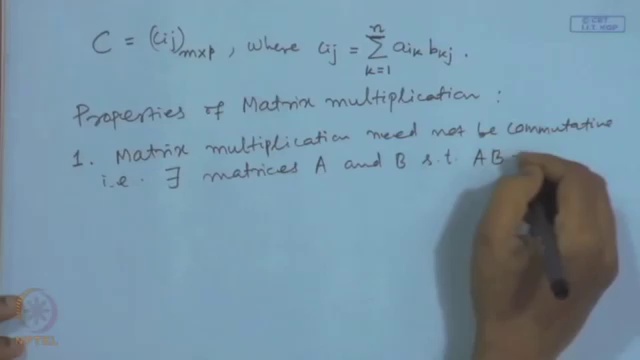 C = (cij)mxp , where cij = n∑k=1 aik bkj .
Properties of Matrix multiplication :
1. Matrix multiplication need not be commutative
i.e. ∃ matrices A and B s.t. AB
© CET
I.I.T. KGP
NPTEL